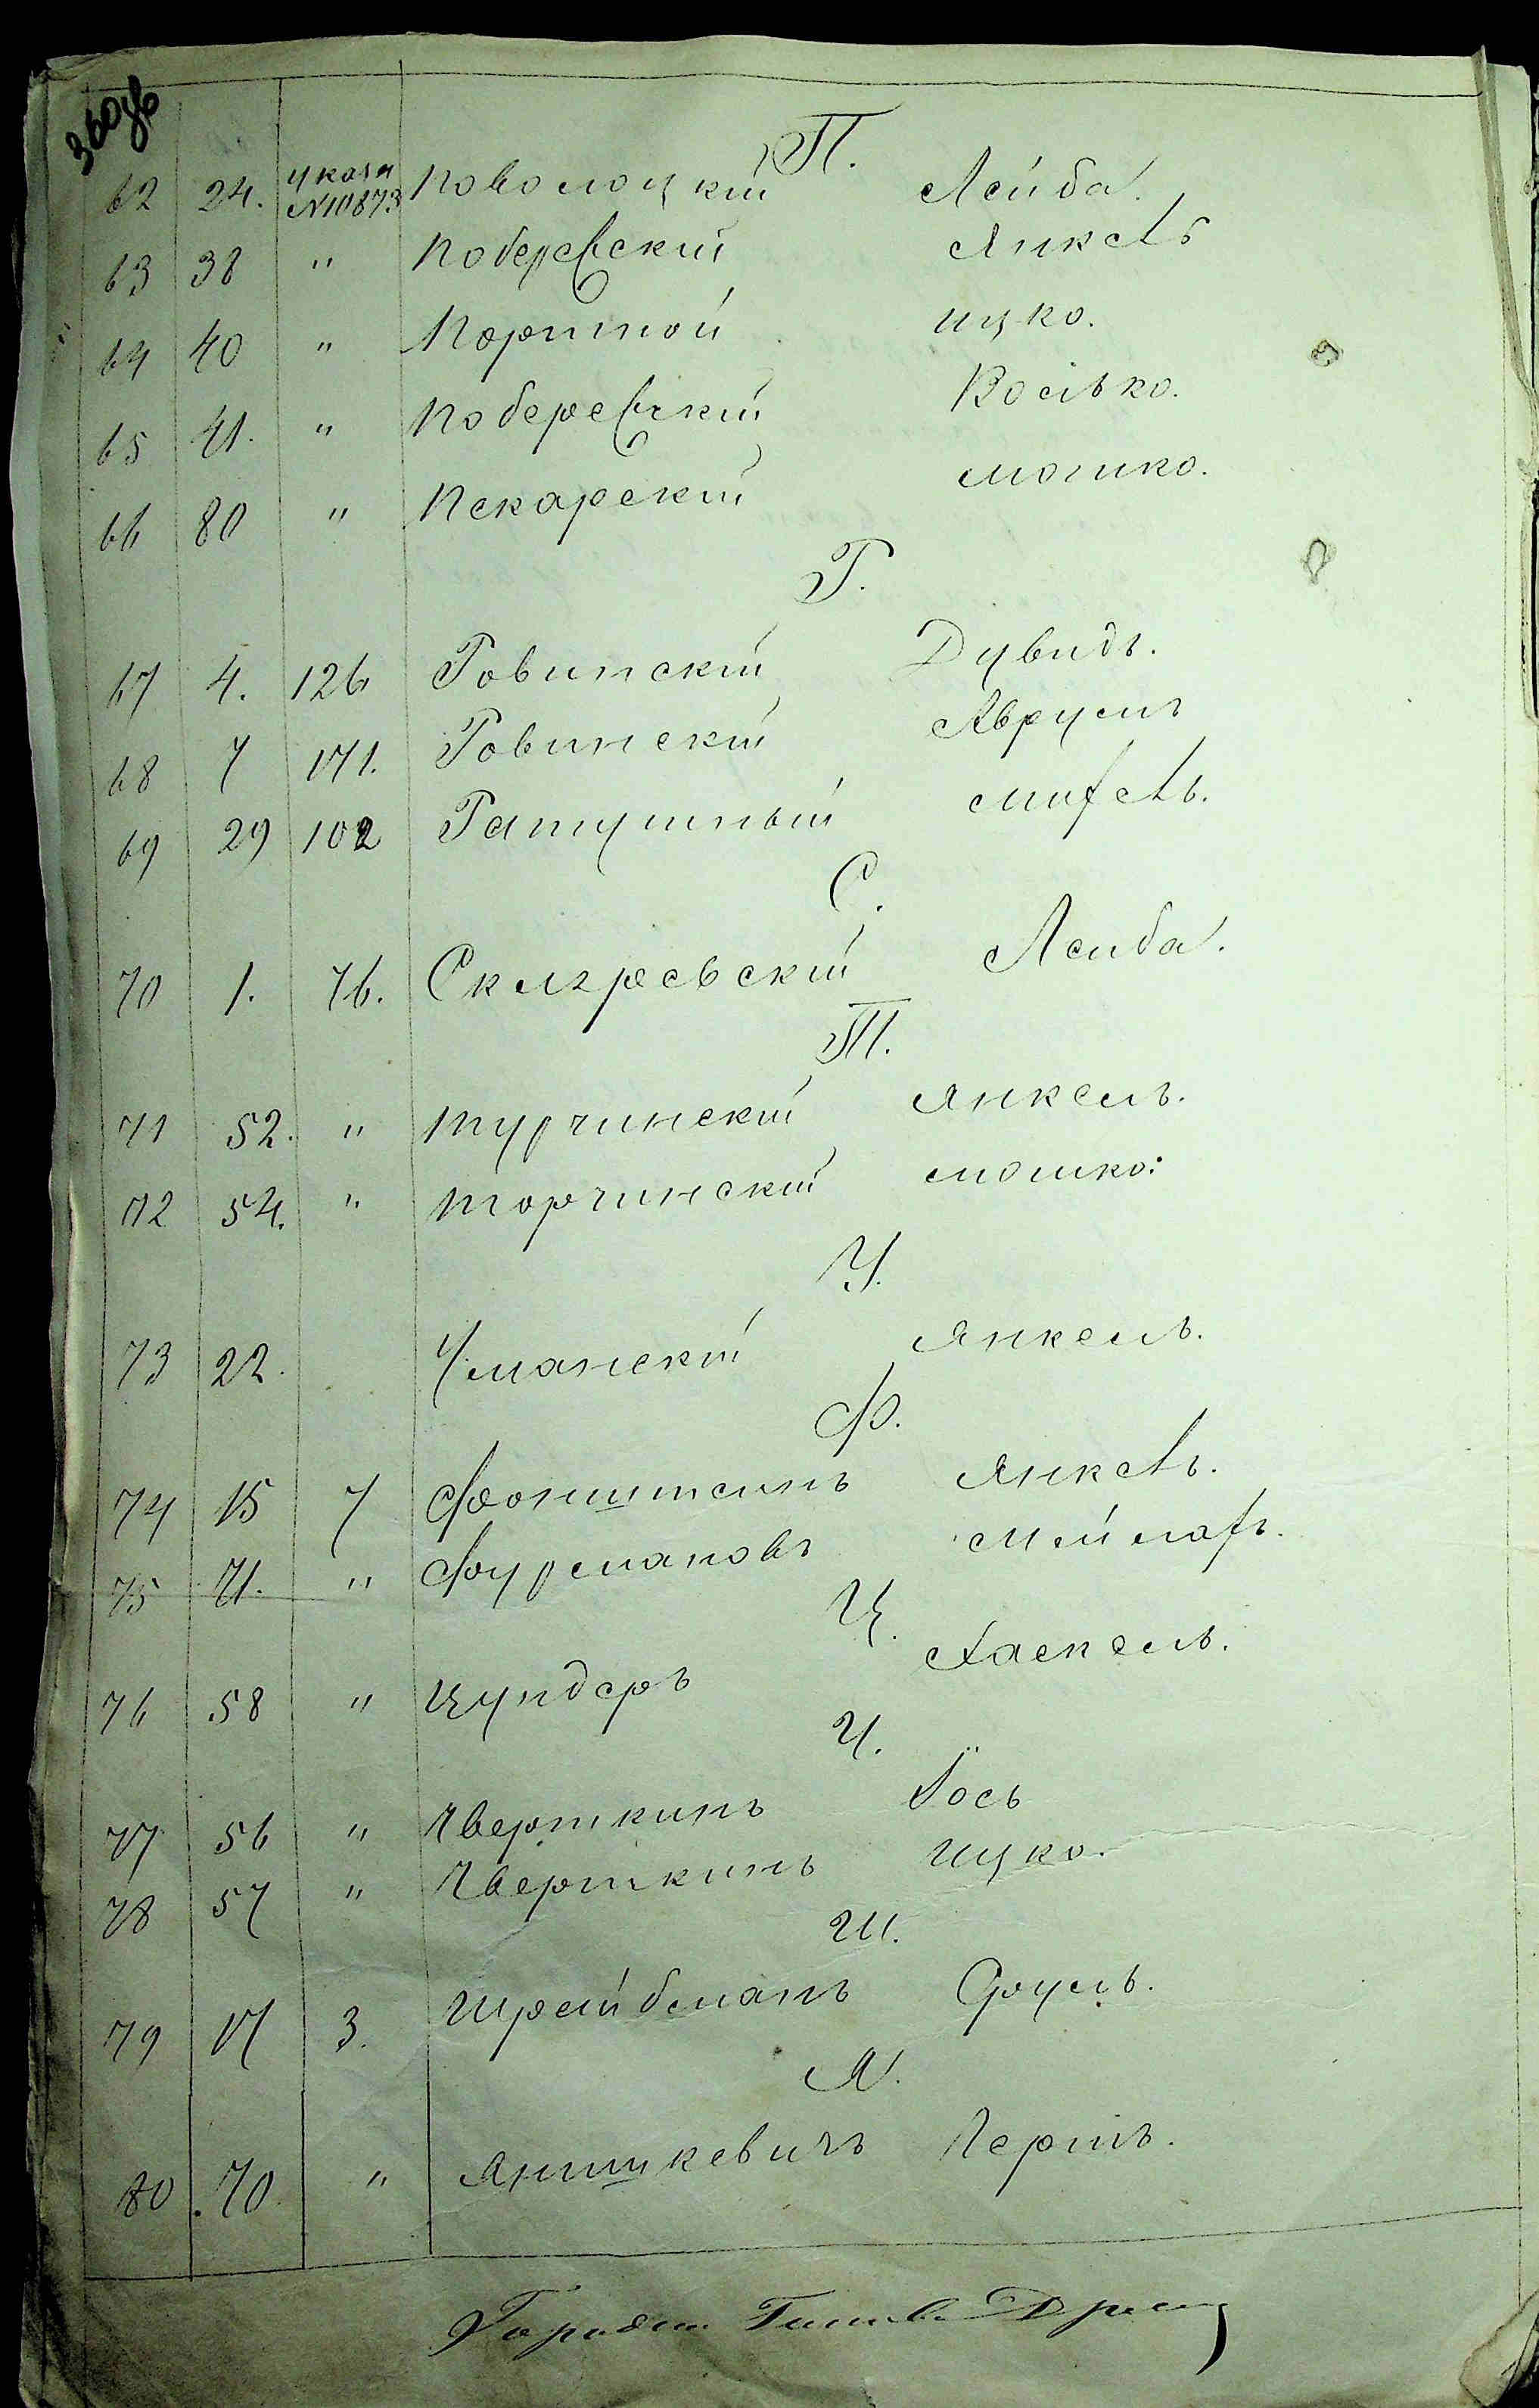 360об
П.
62 24. указа №10873 Поволоцкій Лейба.
63 38 " Поберевскій Янкель
64 40 " Портной Ицко.
65 41. " Поберевскій Іосько.
66 80 " Пекарскій Мошко.
Р.
67 4. 126 Ровинскій Дувидъ.
68 7 171. Ровинскій Аврумъ
69 29 102 Ратушный Мифель.
С.
70 1. 76. Сквгревскій Лейба.
Т.
71 52. " Турчинскій Янкель.
72 54. " Торчинскій Мошко.
У.
73 22. Уманскій Янкель.
Ф.
74 15 7 Фронштеинъ Янкель.
75 71. " Фурмановъ Мейлафъ.
Ц.
76 58 " Цундеръ Хаскель.
Ч.
77 56 " Чверткинъ Іось
78 57 " Чверткинъ Ицко.
Ш.
79 17 3. Шрейбманъ Сруль.
Я.
80 70 " Янишкевичъ Гершъ.